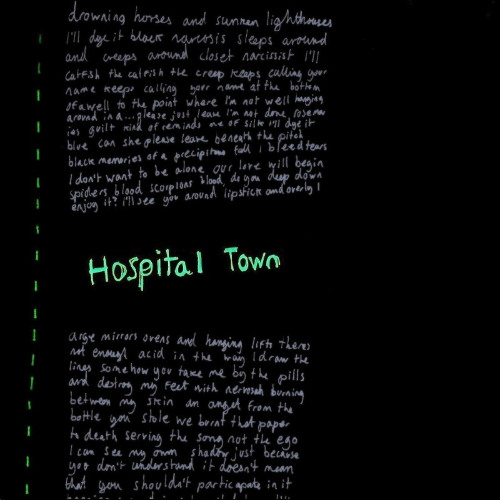 drowning horses and sunken lighthouses
I'll dye it black narcosis sleeps around
and creeps around closet narcissist I'll
catfish the catfish the creep keeps calling your
name keeps calling your name at the bottom
of a well to the point where I'm not well hanging
around in a... please just leave I'm not done
ies guilt kind of reminds me of silk I'll dye it
blue can she please leave beneath the pitch
black memories of a precipitous fall i bleed tears
I don't want to be alone our love will begin
spiders blood scorpions blood do you deep down
enjoy it? i'll see you around lipstick and overly I
Hospital Town
arge mirrors ovens and hanging lifts theres
not enough acid in the way I draw the
lines somehow you take me by the pills
and destroy my feet with nervosa burning
between my skin an angel from the
bottle you stole we burnt that paper
to death serving the song not the ego
I can see my own shadow just because
you don't understand it doesn't mean
that you shouldn't participate in it